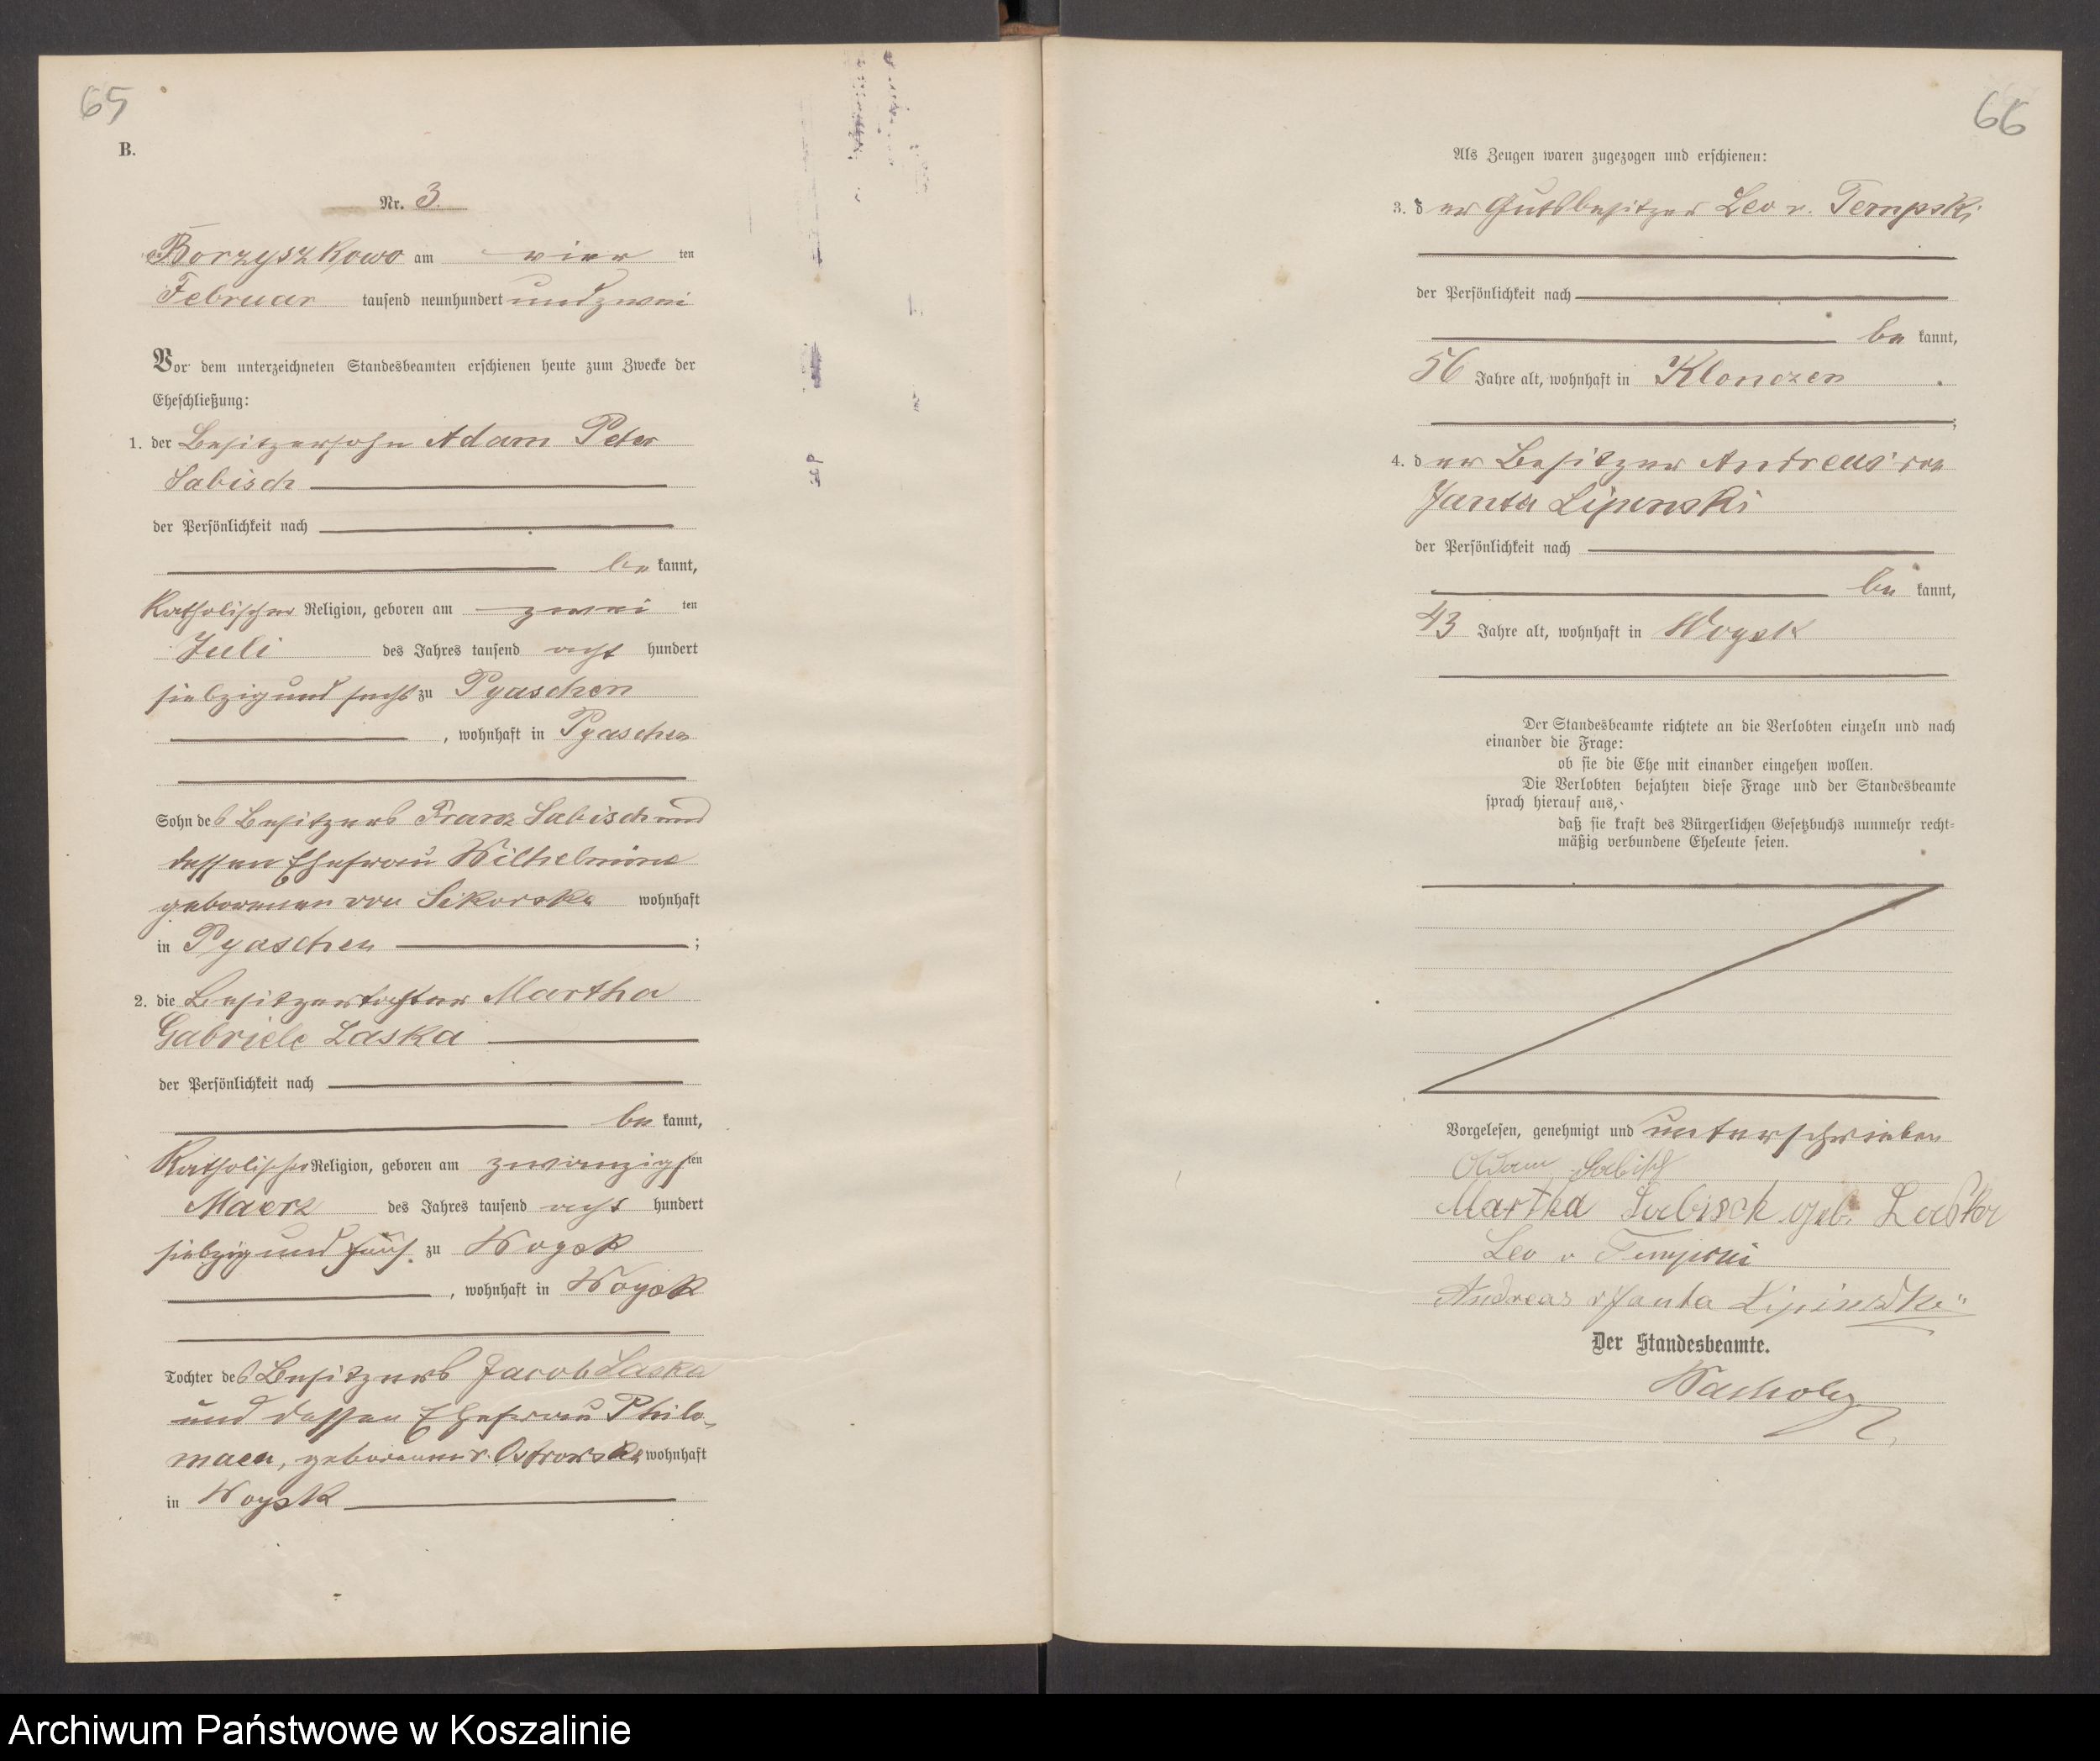 65
B.
Nr. 3.
Borzyszkowo am vier ten
Februar tausend neunhundert und zwei
Vor dem unterzeichneten Standesbeamten erschienen heute zum Zwecke der
Eheschließung:
1. der Besitzersohn Adam Peter
Sabisch
der Persönlichkeit nach
be kannt,
Katholischer Religion, geboren am zwei ten
Juli des Jahres tausend acht hundert
siebzig und sechs zu Pyaschen
, wohnhaft in Pyaschen
Sohn des Besitzers Franz Sabisch und
dessen Ehefrau Wilhelmine
geborenen von Sikorska wohnhaft
in Pyaschen ;
2. die Besitzertochter Martha
Gabriele Laska
der Persönlichkeit nach
be kannt,
Katholischer Religion, geboren am zwanzigsten
Maerz des Jahres tausend acht hundert
siebzig und fünf zu Woysk
, wohnhaft in Woysk
Tochter des Besitzers Jacob Laska
und dessen Ehefrau Philo-
maea, geborenen v. Ostrowska wohnhaft
in Woysk
66
Als Zeugen waren zugezogen und erschienen:
3. der Gutsbesitzer Leo v. Tempski
der Persönlichkeit nach
be kannt,
56 Jahre alt, wohnhaft in Klonczen .
;
4. der Besitzer Andreas von
Janta Lipinski
der Persönlichkeit nach
be kannt,
43 Jahre alt, wohnhaft in Woysk
Der Standesbeamte richtete an die Verlobten einzeln und nach
einander die Frage:
ob sie die Ehe mit einander eingehen wollen.
Die Verlobten bejahten diese Frage und der Standesbeamte
sprach hierauf aus,
daß sie kraft des Bürgerlichen Gesetzbuchs nunmehr recht-
mäßig verbundene Eheleute seien.
Vorgelesen, genehmigt und unterschrieben
Adam Sabisch
Martha Sabisch geb. Laska
Leo v Tempski
Andreas v Janta Lipinski
Der Standesbeamte.
Archiwum Państwowe w Koszalinie